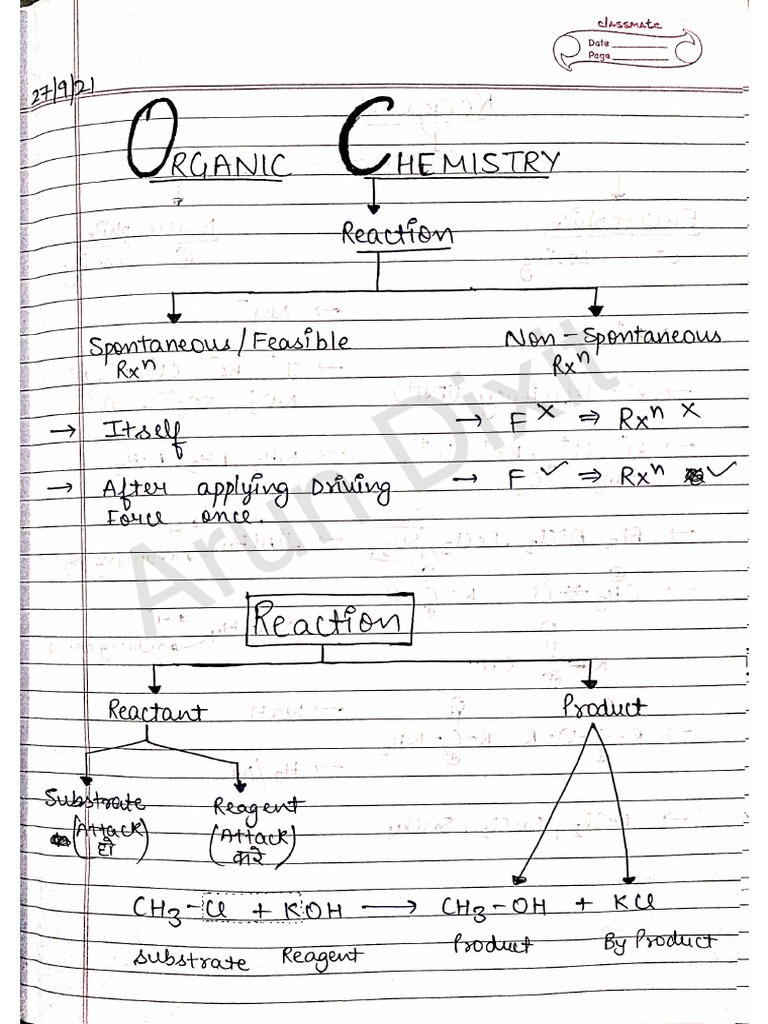 classmate
Date
Page
27/9/21
ORGANIC CHEMISTRY
Reaction
Spontaneous/Feasible Rxⁿ
Non-Spontaneous Rxⁿ
→ Itself
→ F × ⇒ Rxⁿ ×
→ After applying Driving Force once.
→ F ✓ ⇒ Rxⁿ ✓
Reaction
Reactant
Product
Substrate
(Attack हो)
Reagent
(Attack करे)
CH₃-Cl + KOH → CH₃-OH + KCl
Substrate Reagent Product By Product
Arun Dixit